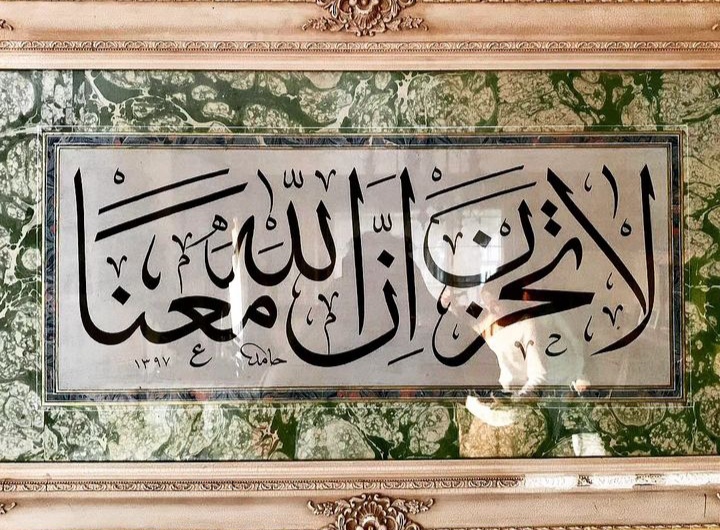 لا تحزن إنّ الله معنا
حامد ١٣٩٧